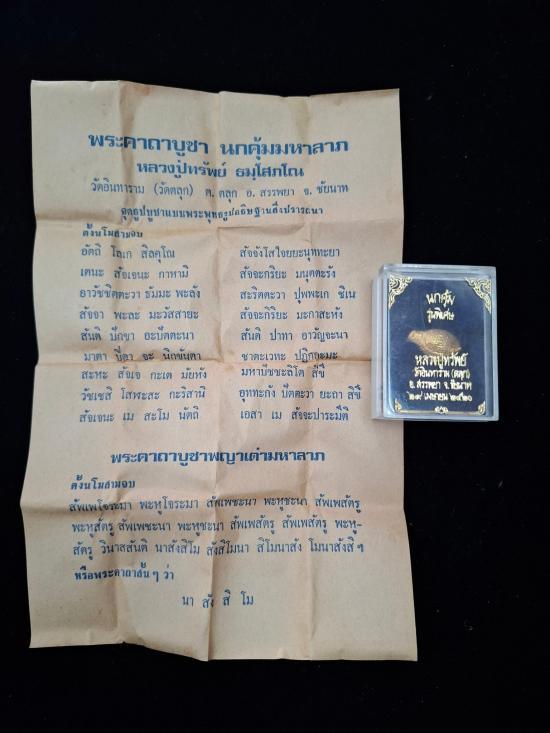 พระคาถาบูชา นกคุ้มมหาลาภ
หลวงปู่ทรัพย์ ธมฺโสภโณ
วัดอินทาราม (วัดตลุก) ต. ตลุก อ. สรรพยา จ. ชัยนาท
จุดธูปบูชาแบบพระพุทธรูปอธิษฐานสิ่งปรารถนา
ตั้งนโมสามจบ
อัตถิ โลเก สิลคุโณ
เตนะ สัจเจนะ กาหามิ
อาวัชชิตตะวา ธัมมะ พะลัง
สัจจา พะละ มะวัสสายะ
สันติ ปักขา อะปัตตะนา
มาตา ปิตา จะ นิกขันตา
สะหะ สัจเจ กะเต มัยหัง
วัชเชสิ โสฬะสะ กะริสานิ
สัจเจนะ เม สะโม นัตถิ
สัจจังโสใจยยะนุททะยา
สัจจะกริยะ มนุตตะรัง
สะริตตะวา ปุพพะเก ชิเน
สัจจะกิริยะ มะกาสะหัง
สันติ ปาทา อาวัญจะนา
ชาตะเวทะ ปฏิกจะมะ
มหาปัชชะลิโต สิขี
อุททะกัง ปัตตะวา ยะถา สิขี
เอสา เม สัจจะปาระมีติ
พระคาถาบูชาพญาเต่ามหาลาภ
ตั้งนโมสามจบ
สัพเพโจระมา พะหูโจระมา สัพเพชะนา พะหูชะนา สัพเพสัตรู
พะหูสัตรู สัพเพชะนา พะหูชะนา สัพเพสัตรู สัพเพสัตรู พะหู-
สัตรู วินาสสันติ นาสังสิโม สังสิโมนา สิโมนาสัง โมนาสังสิ ฯ
หรือพระคาถาสั้น ๆ ว่า
นา สัง สิ โม
นกคุ้ม
รุ่นพิเศษ
หลวงปู่ทรัพย์
วัดอินทาราม (ตลุก)
อ. สรรพยา จ. ชัยนาท
๒๙ เมษายน ๒๕๒๐